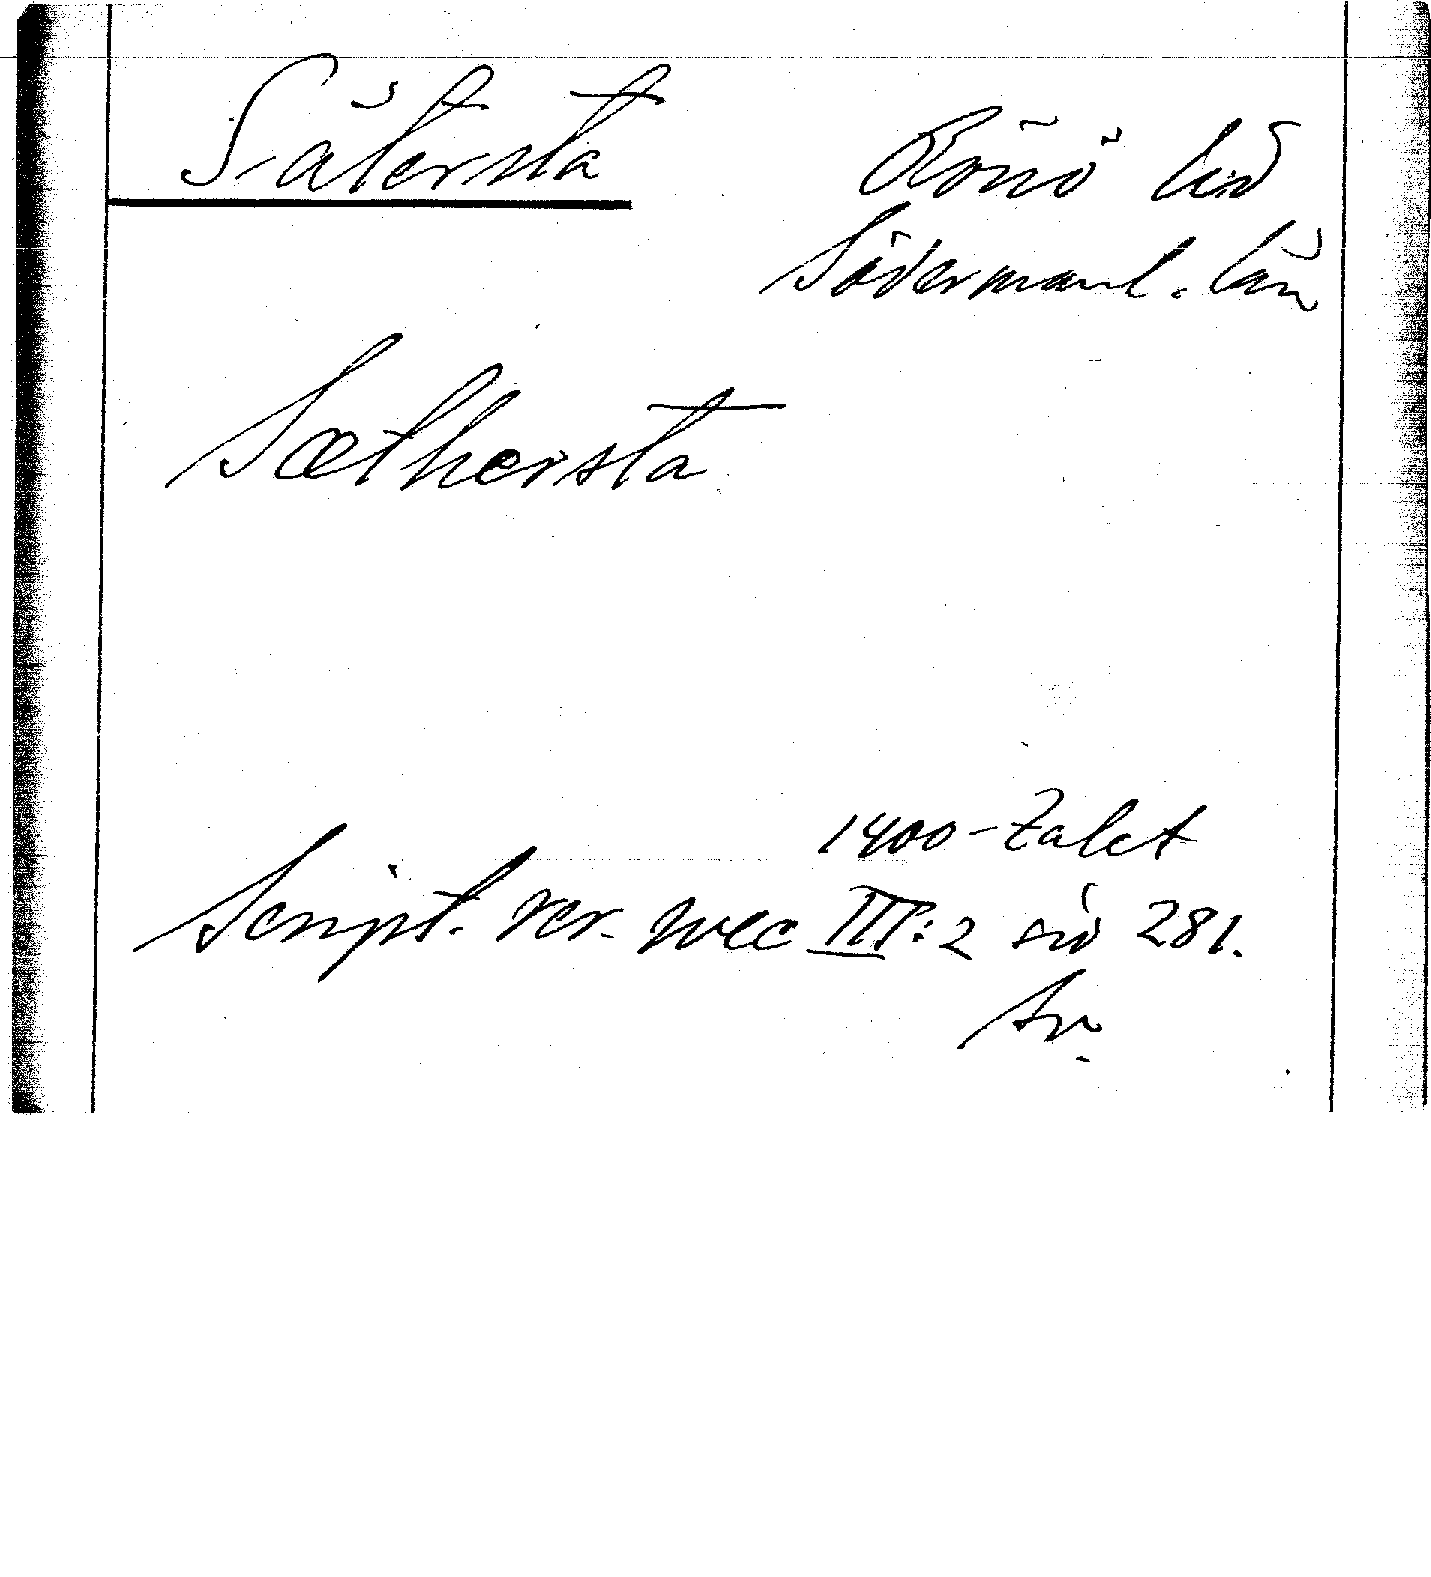 Sätersta
Rönö hd
Södermanl. län
Sæthersta
1400-talet
Script. rer. svec III:2 sid 281.